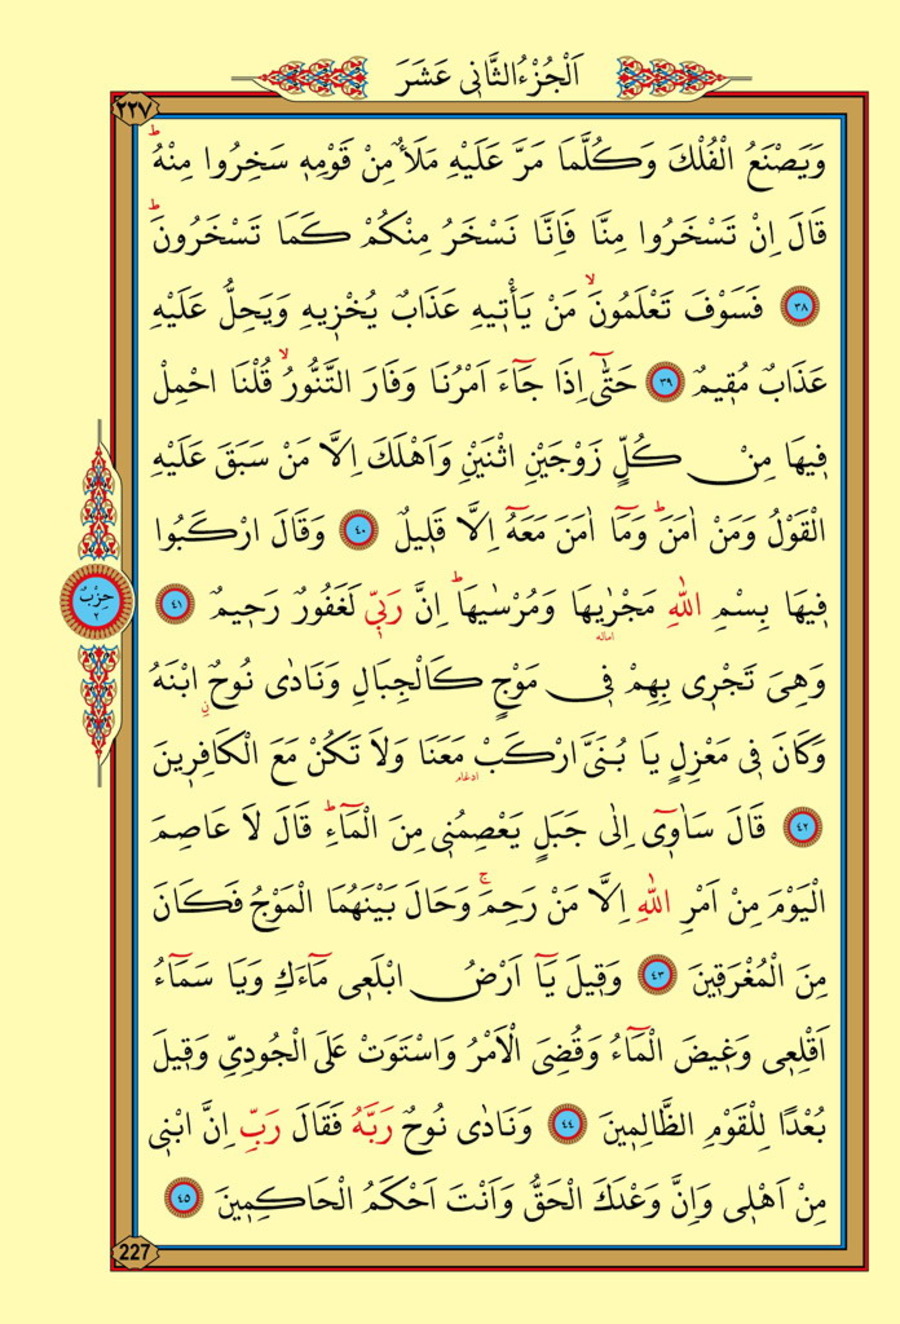 اَلْجُزْءُ الثَّانِى عَشَرَ
٢٢٧
وَيَصْنَعُ الْفُلْكَ وَكُلَّمَا مَرَّ عَلَيْهِ مَلَأٌ مِنْ قَوْمِهِ سَخِرُوا مِنْهُ ط
قَالَ اِنْ تَسْخَرُوا مِنَّا فَاِنَّا نَسْخَرُ مِنْكُمْ كَمَا تَسْخَرُونَ ط
٣٨ فَسَوْفَ تَعْلَمُونَ لا مَنْ يَأْتِيهِ عَذَابٌ يُخْزِيهِ وَيَحِلُّ عَلَيْهِ
عَذَابٌ مُقِيمٌ ٣٩ حَتّٰٓى اِذَا جَٓاءَ اَمْرُنَا وَفَارَ التَّنُّورُ لا قُلْنَا احْمِلْ
فِيهَا مِنْ كُلٍّ زَوْجَيْنِ اثْنَيْنِ وَاَهْلَكَ اِلَّا مَنْ سَبَقَ عَلَيْهِ
الْقَوْلُ وَمَنْ اٰمَنَ ط وَمَٓا اٰمَنَ مَعَهُٓ اِلَّا قَلِيلٌ ٤٠ وَقَالَ ارْكَبُوا
فِيهَا بِسْمِ اللّٰهِ مَجْرٰۭيهَا وَمُرْسٰيهَا ط اِنَّ رَبِّى لَغَفُورٌ رَحِيمٌ ٤١
اماله
حِزْبٌ
٢
وَهِىَ تَجْرِى بِهِمْ فِى مَوْجٍ كَالْجِبَالِ وَنَادٰى نُوحٌ ابْنَهُ
نِ
وَكَانَ فِى مَعْزِلٍ يَا بُنَىَّ ارْكَبْ مَعَنَا وَلَا تَكُنْ مَعَ الْكَافِرِينَ
ادغام
٤٢ قَالَ سَاٰوِٓى اِلٰى جَبَلٍ يَعْصِمُنِى مِنَ الْمَٓاءِ ط قَالَ لَا عَاصِمَ
الْيَوْمَ مِنْ اَمْرِ اللّٰهِ اِلَّا مَنْ رَحِمَ ج وَحَالَ بَيْنَهُمَا الْمَوْجُ فَكَانَ
مِنَ الْمُغْرَقِينَ ٤٣ وَقِيلَ يَٓا اَرْضُ ابْلَعِى مَٓاءَكِ وَيَا سَمَٓاءُ
اَقْلِعِى وَغِيضَ الْمَٓاءُ وَقُضِىَ الْاَمْرُ وَاسْتَوَتْ عَلَى الْجُودِىِّ وَقِيلَ
بُعْدًا لِلْقَوْمِ الظَّالِمِينَ ٤٤ وَنَادٰى نُوحٌ رَبَّهُ فَقَالَ رَبِّ اِنَّ ابْنِى
مِنْ اَهْلِى وَاِنَّ وَعْدَكَ الْحَقُّ وَاَنْتَ اَحْكَمُ الْحَاكِمِينَ ٤٥
227